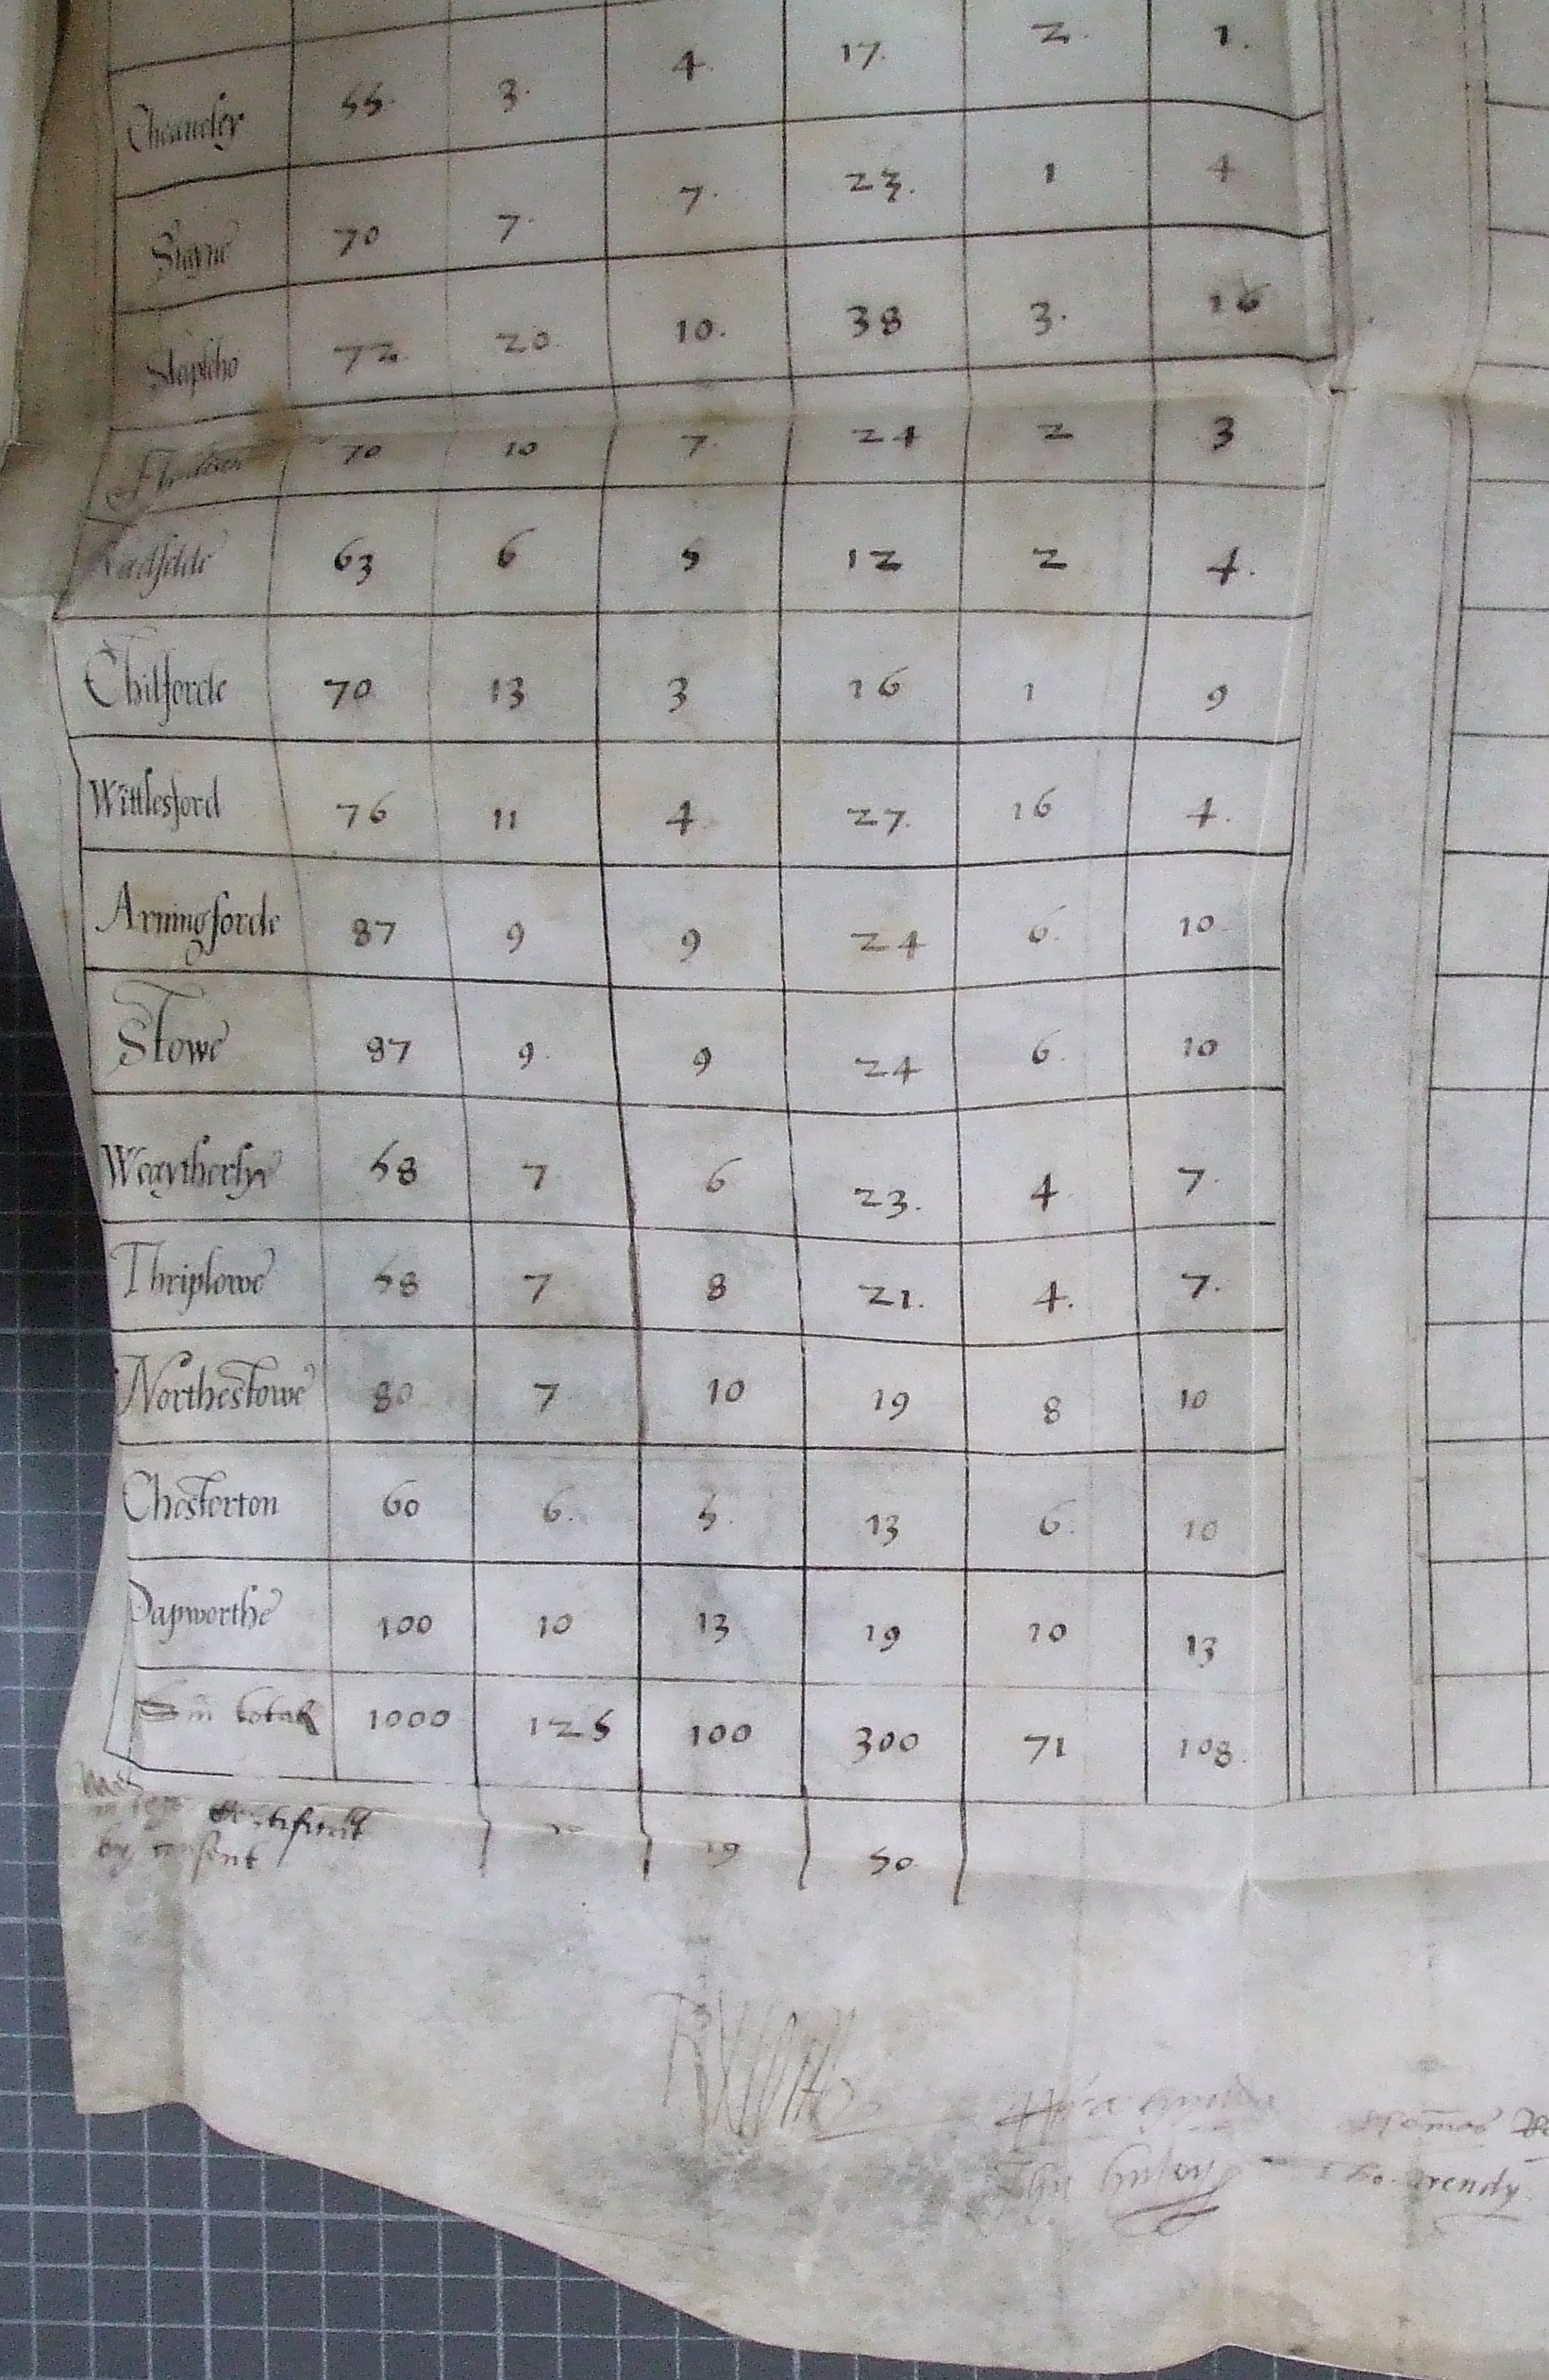 Cheaueley 55. 3. 4. 17. 2. 1.
Stayne 70 7. 7. 23. 1 4
Stapleho 72. 20. 10. 38 3. 16
70 10 7. 24 2 3
Radfelde 63 6 5 12 2 4.
Chilforde 70 13 3 16 1 9
Wittlesford 76 11 4. 27. 16 4.
Arningforde 87 9 9 24 6. 10
Stowe 87 9. 9 24 6. 10
Weaytherley 58 7 6 23. 4 7.
Thriplowe 58 7 8 21. 4. 7.
Northestowe 80 7 10 19 8 10
Chesterton 60 6. 5. 13 6. 10
Papworthe 100 10 13 19 10 13
Sm̃ totall 1000 125 100 300 71 108.
19 50
by